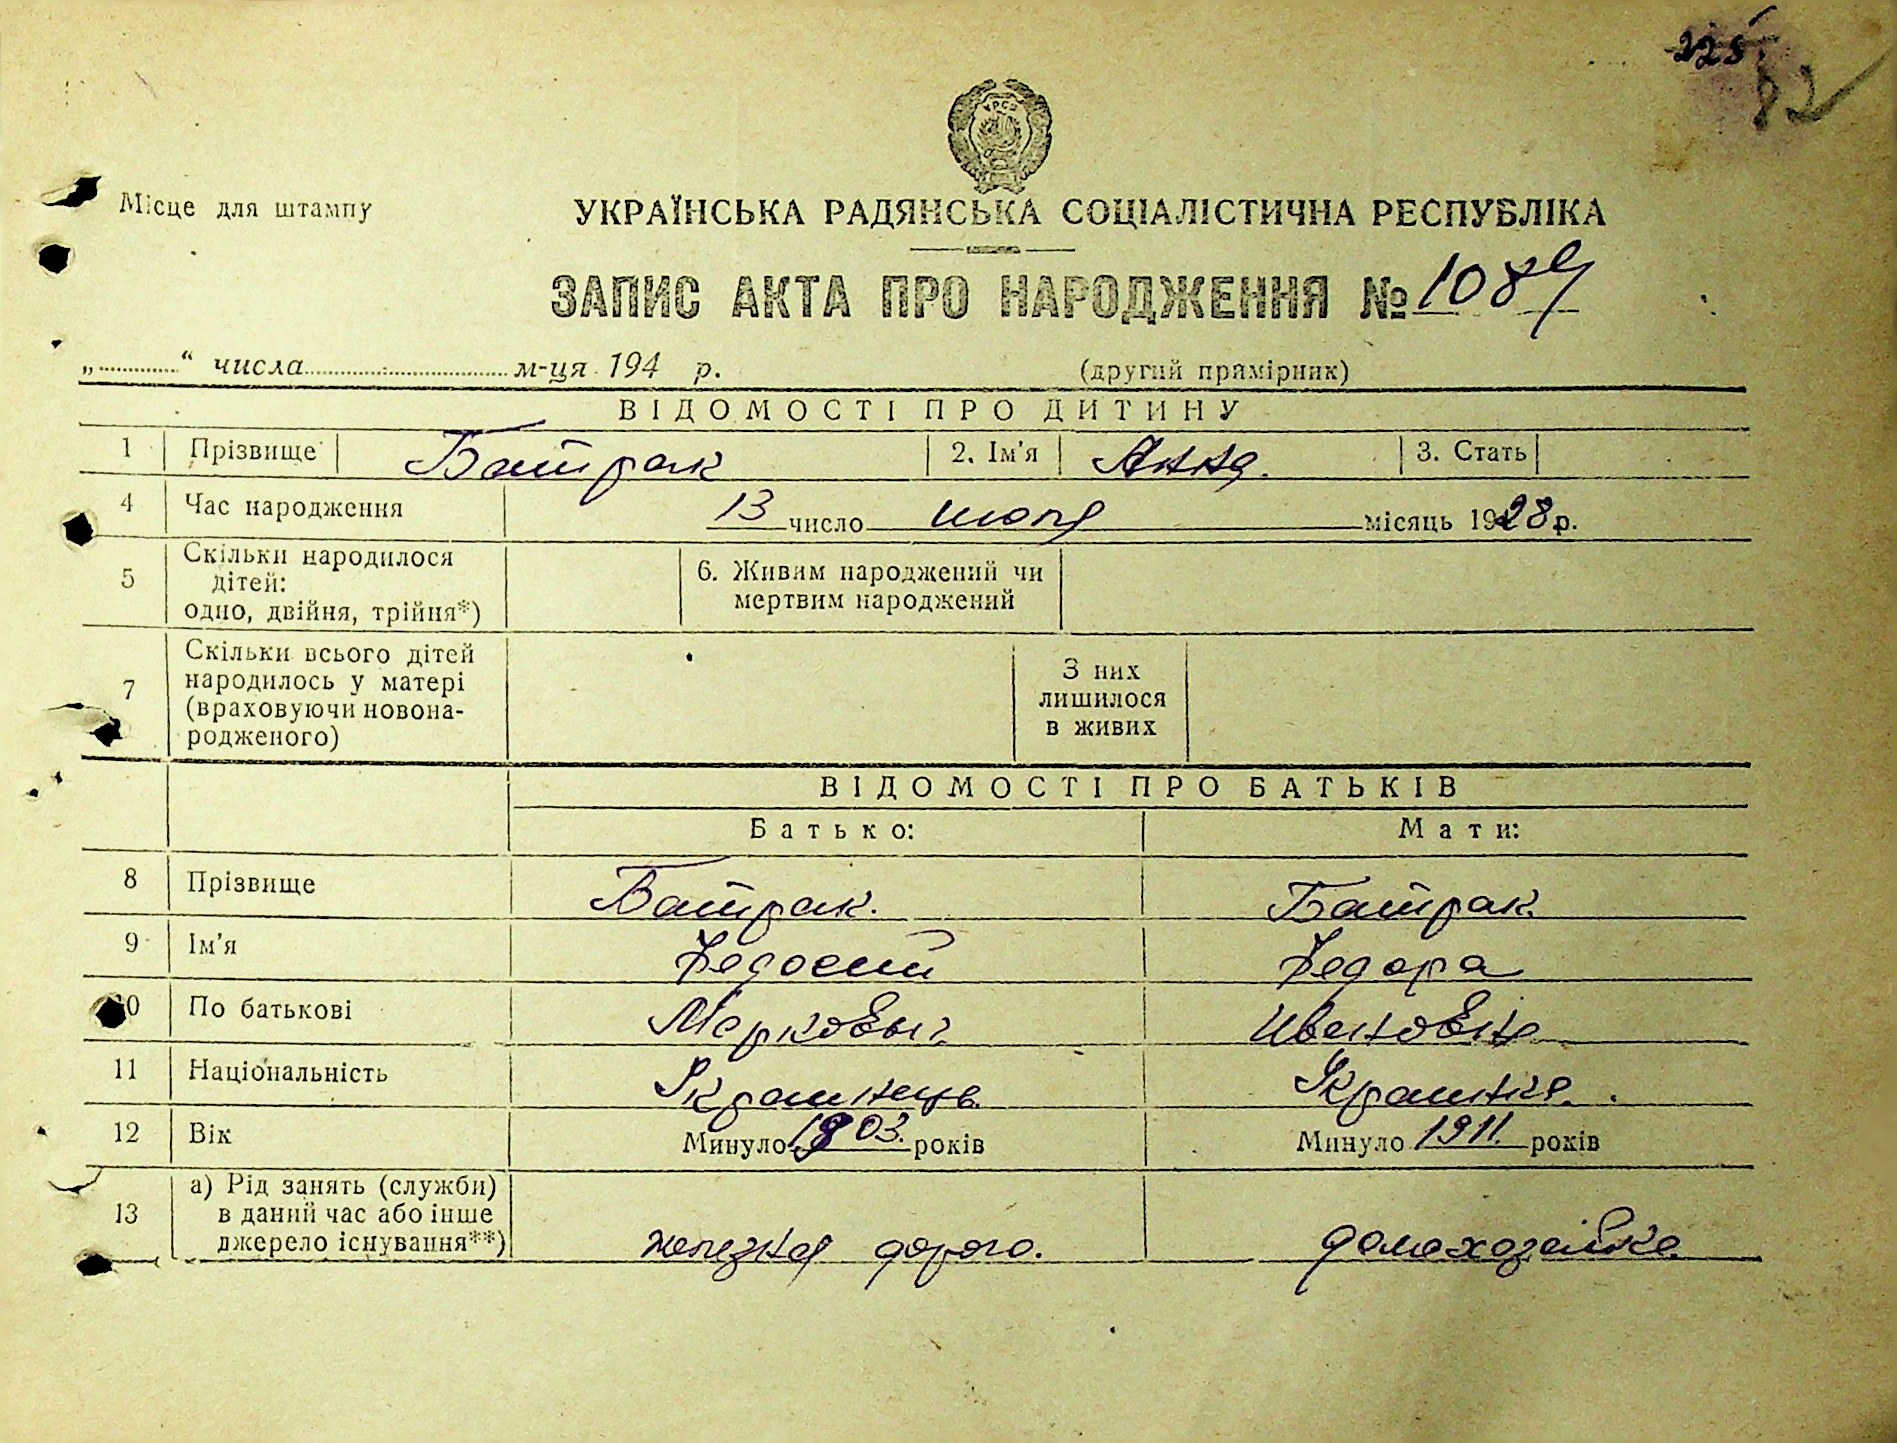 225
82
УРСР
Місце для штампу
УКРАЇНСЬКА РАДЯНСЬКА СОЦІАЛІСТИЧНА РЕСПУБЛІКА
ЗАПИС АКТА ПРО НАРОДЖЕННЯ № 1089
„ “ числа м-ця 194 р. (другий примірник)
ВІДОМОСТІ ПРО ДИТИНУ
1 Прізвище Батрак 2. Ім’я Анна. 3. Стать
4 Час народження 13 число июля місяць 1928 р.
5 Скільки народилося дітей: одно, двійня, трійня*) 6. Живим народжений чи мертвим народжений
7 Скільки всього дітей народилось у матері (враховуючи новона-родженого) З них лишилося в живих
ВІДОМОСТІ ПРО БАТЬКІВ
Батько: Мати:
8 Прізвище Батрак. Батрак.
9 Ім’я Федосий Федора
10 По батькові Маркович Ивановна
11 Національність Украинець. Украинка.
12 Вік Минуло 1903. років Минуло 1911. років
13 а) Рід занять (служби) в даний час або інше джерело існування**) железная дорога. домохозяйка.